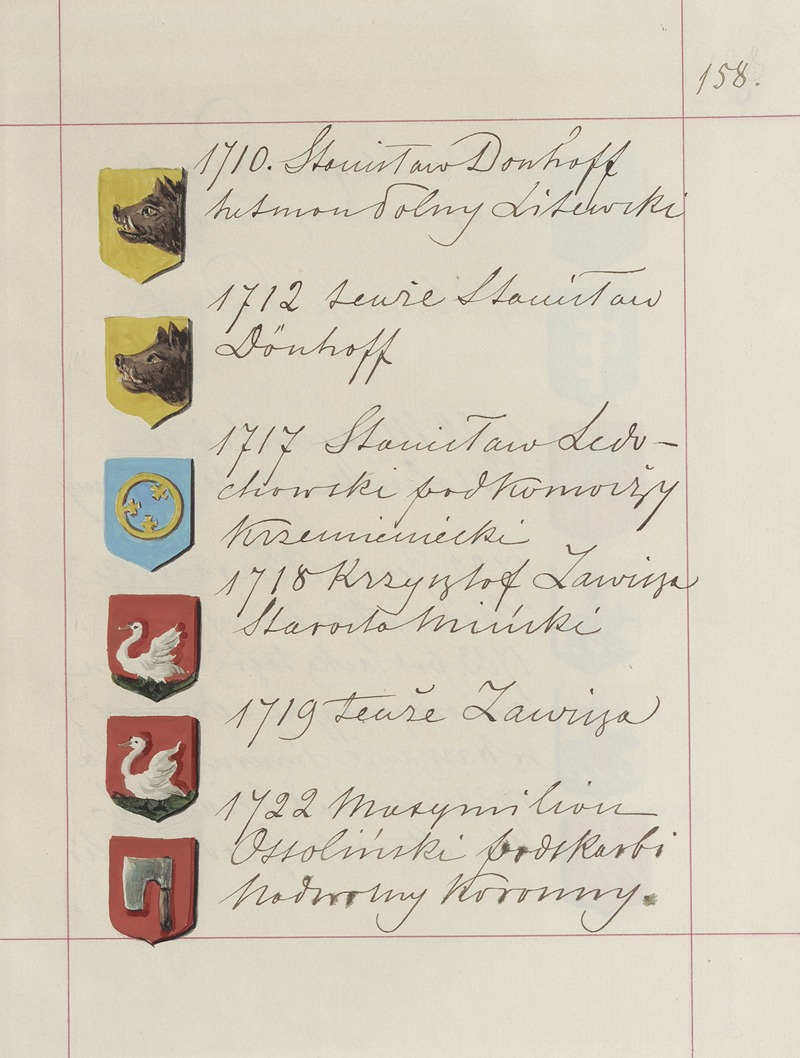 158.
1710. Stanisław Donhoff
hetman Polny Litewski
1712 tenże Stanisław
Dönhoff
1717 Stanisław Ledo-
chowski podkomorzy
Krzemieniecki
1718 Krzysztof Zawisza
Starosta Miński
1719 tenże Zawisza
1722 Maxymilian
Ossoliński podskarbi
Nadworny Koronny.